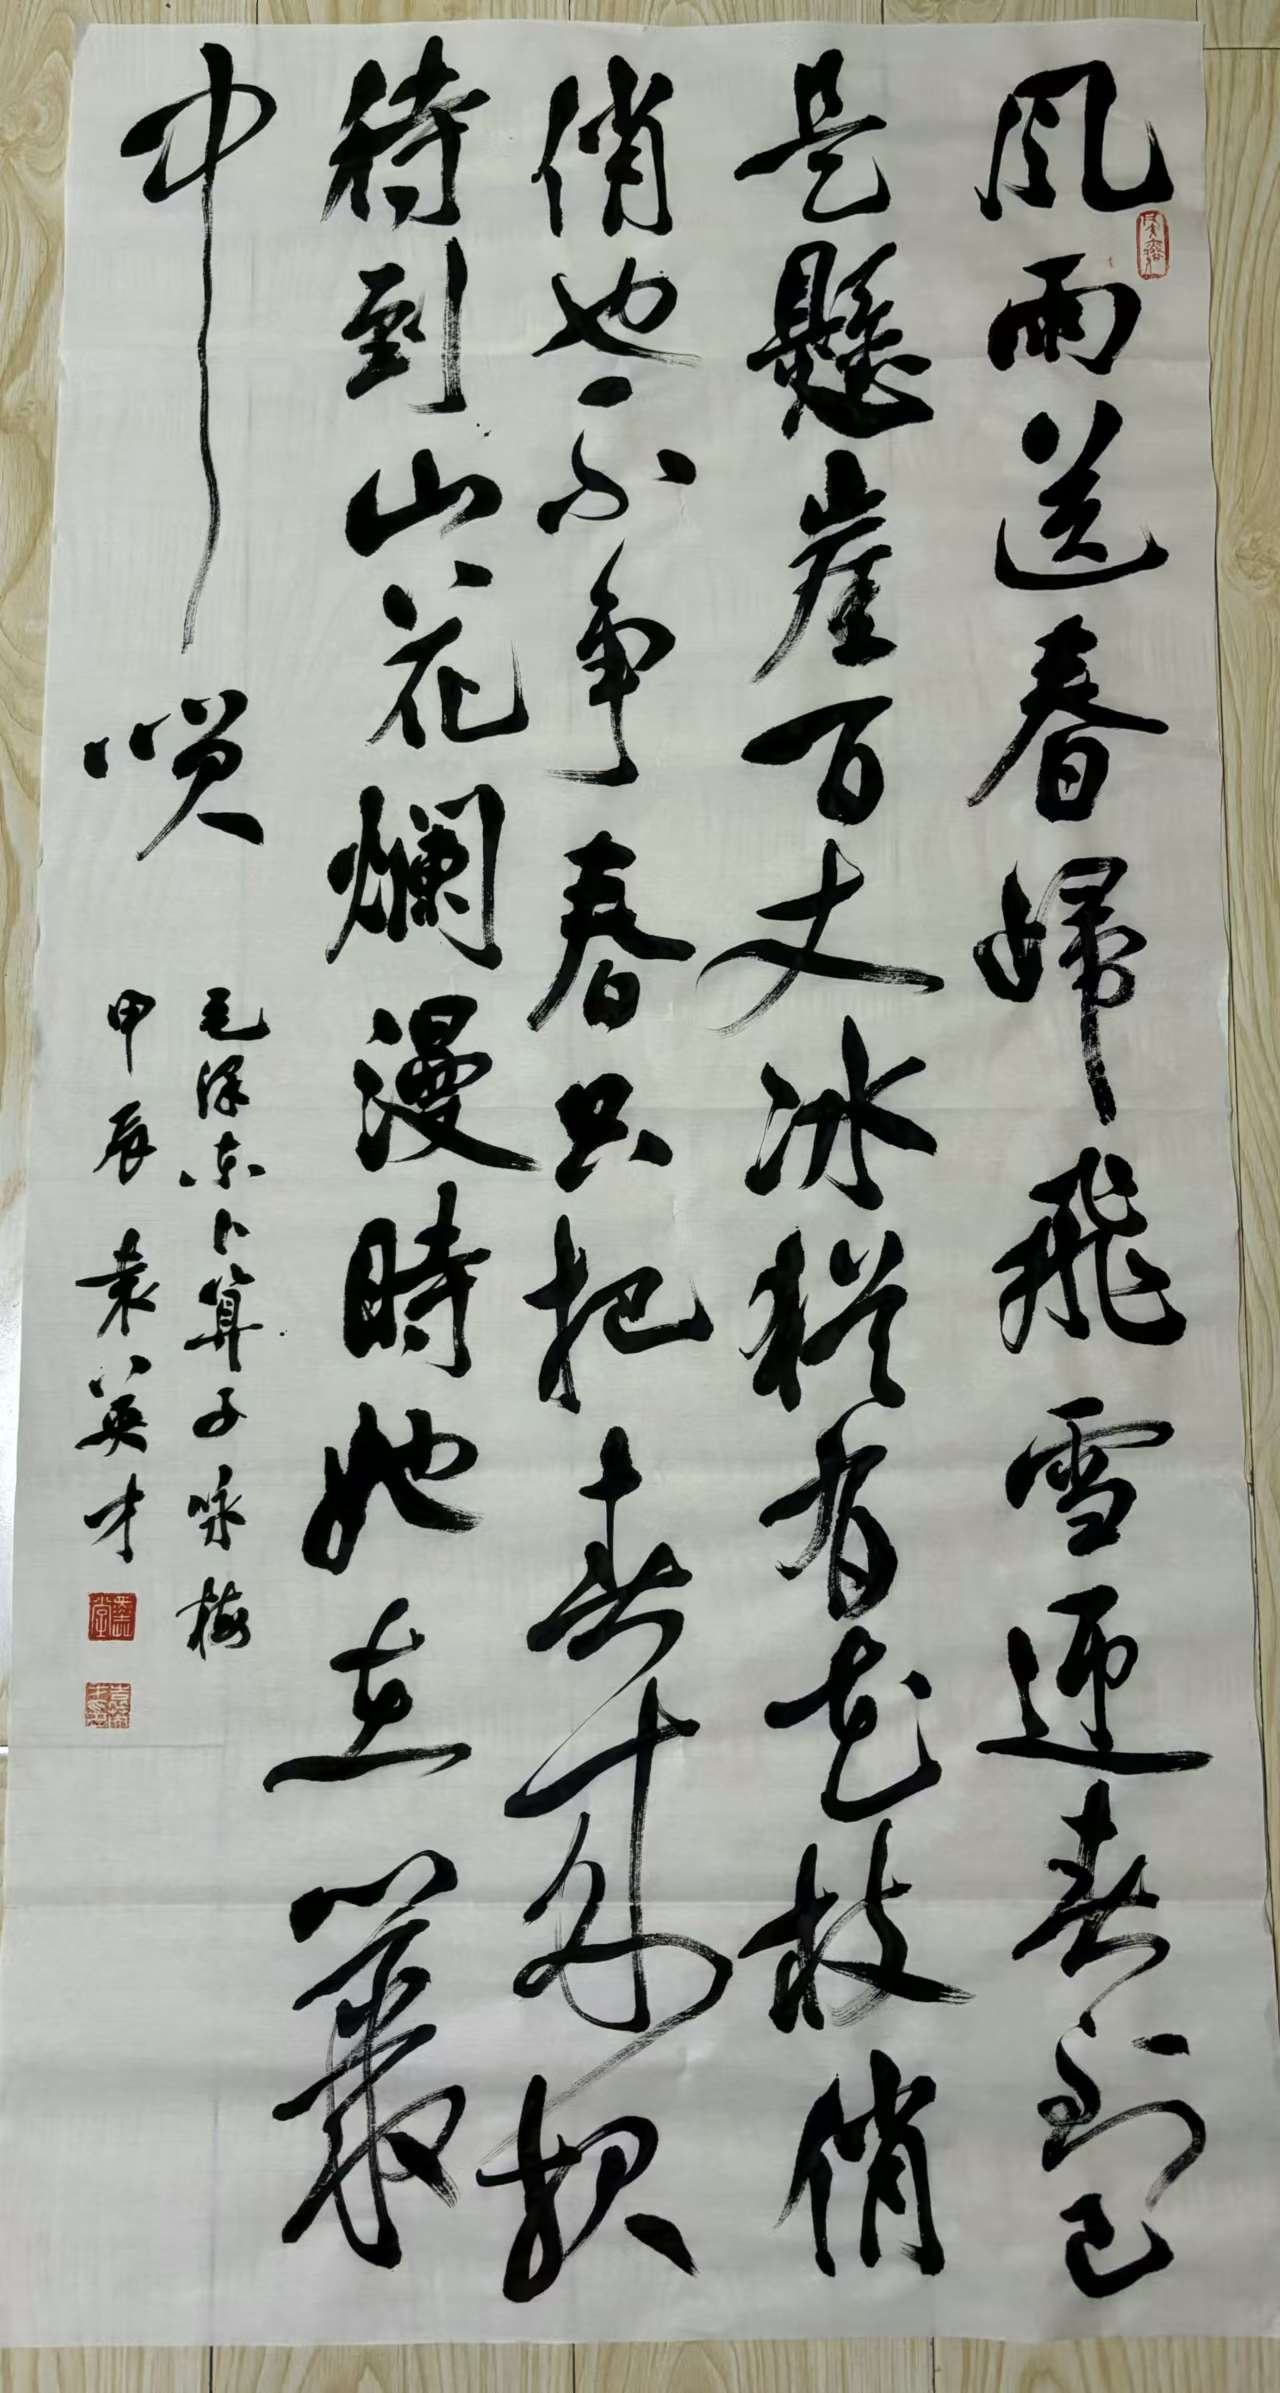 風雨送春歸飛雪迎春到已
是懸崖百丈冰猶有花枝俏
俏也不争春只把春來報
待到山花爛漫時她在叢
中笑
毛澤东卜算子咏梅
甲辰袁英才